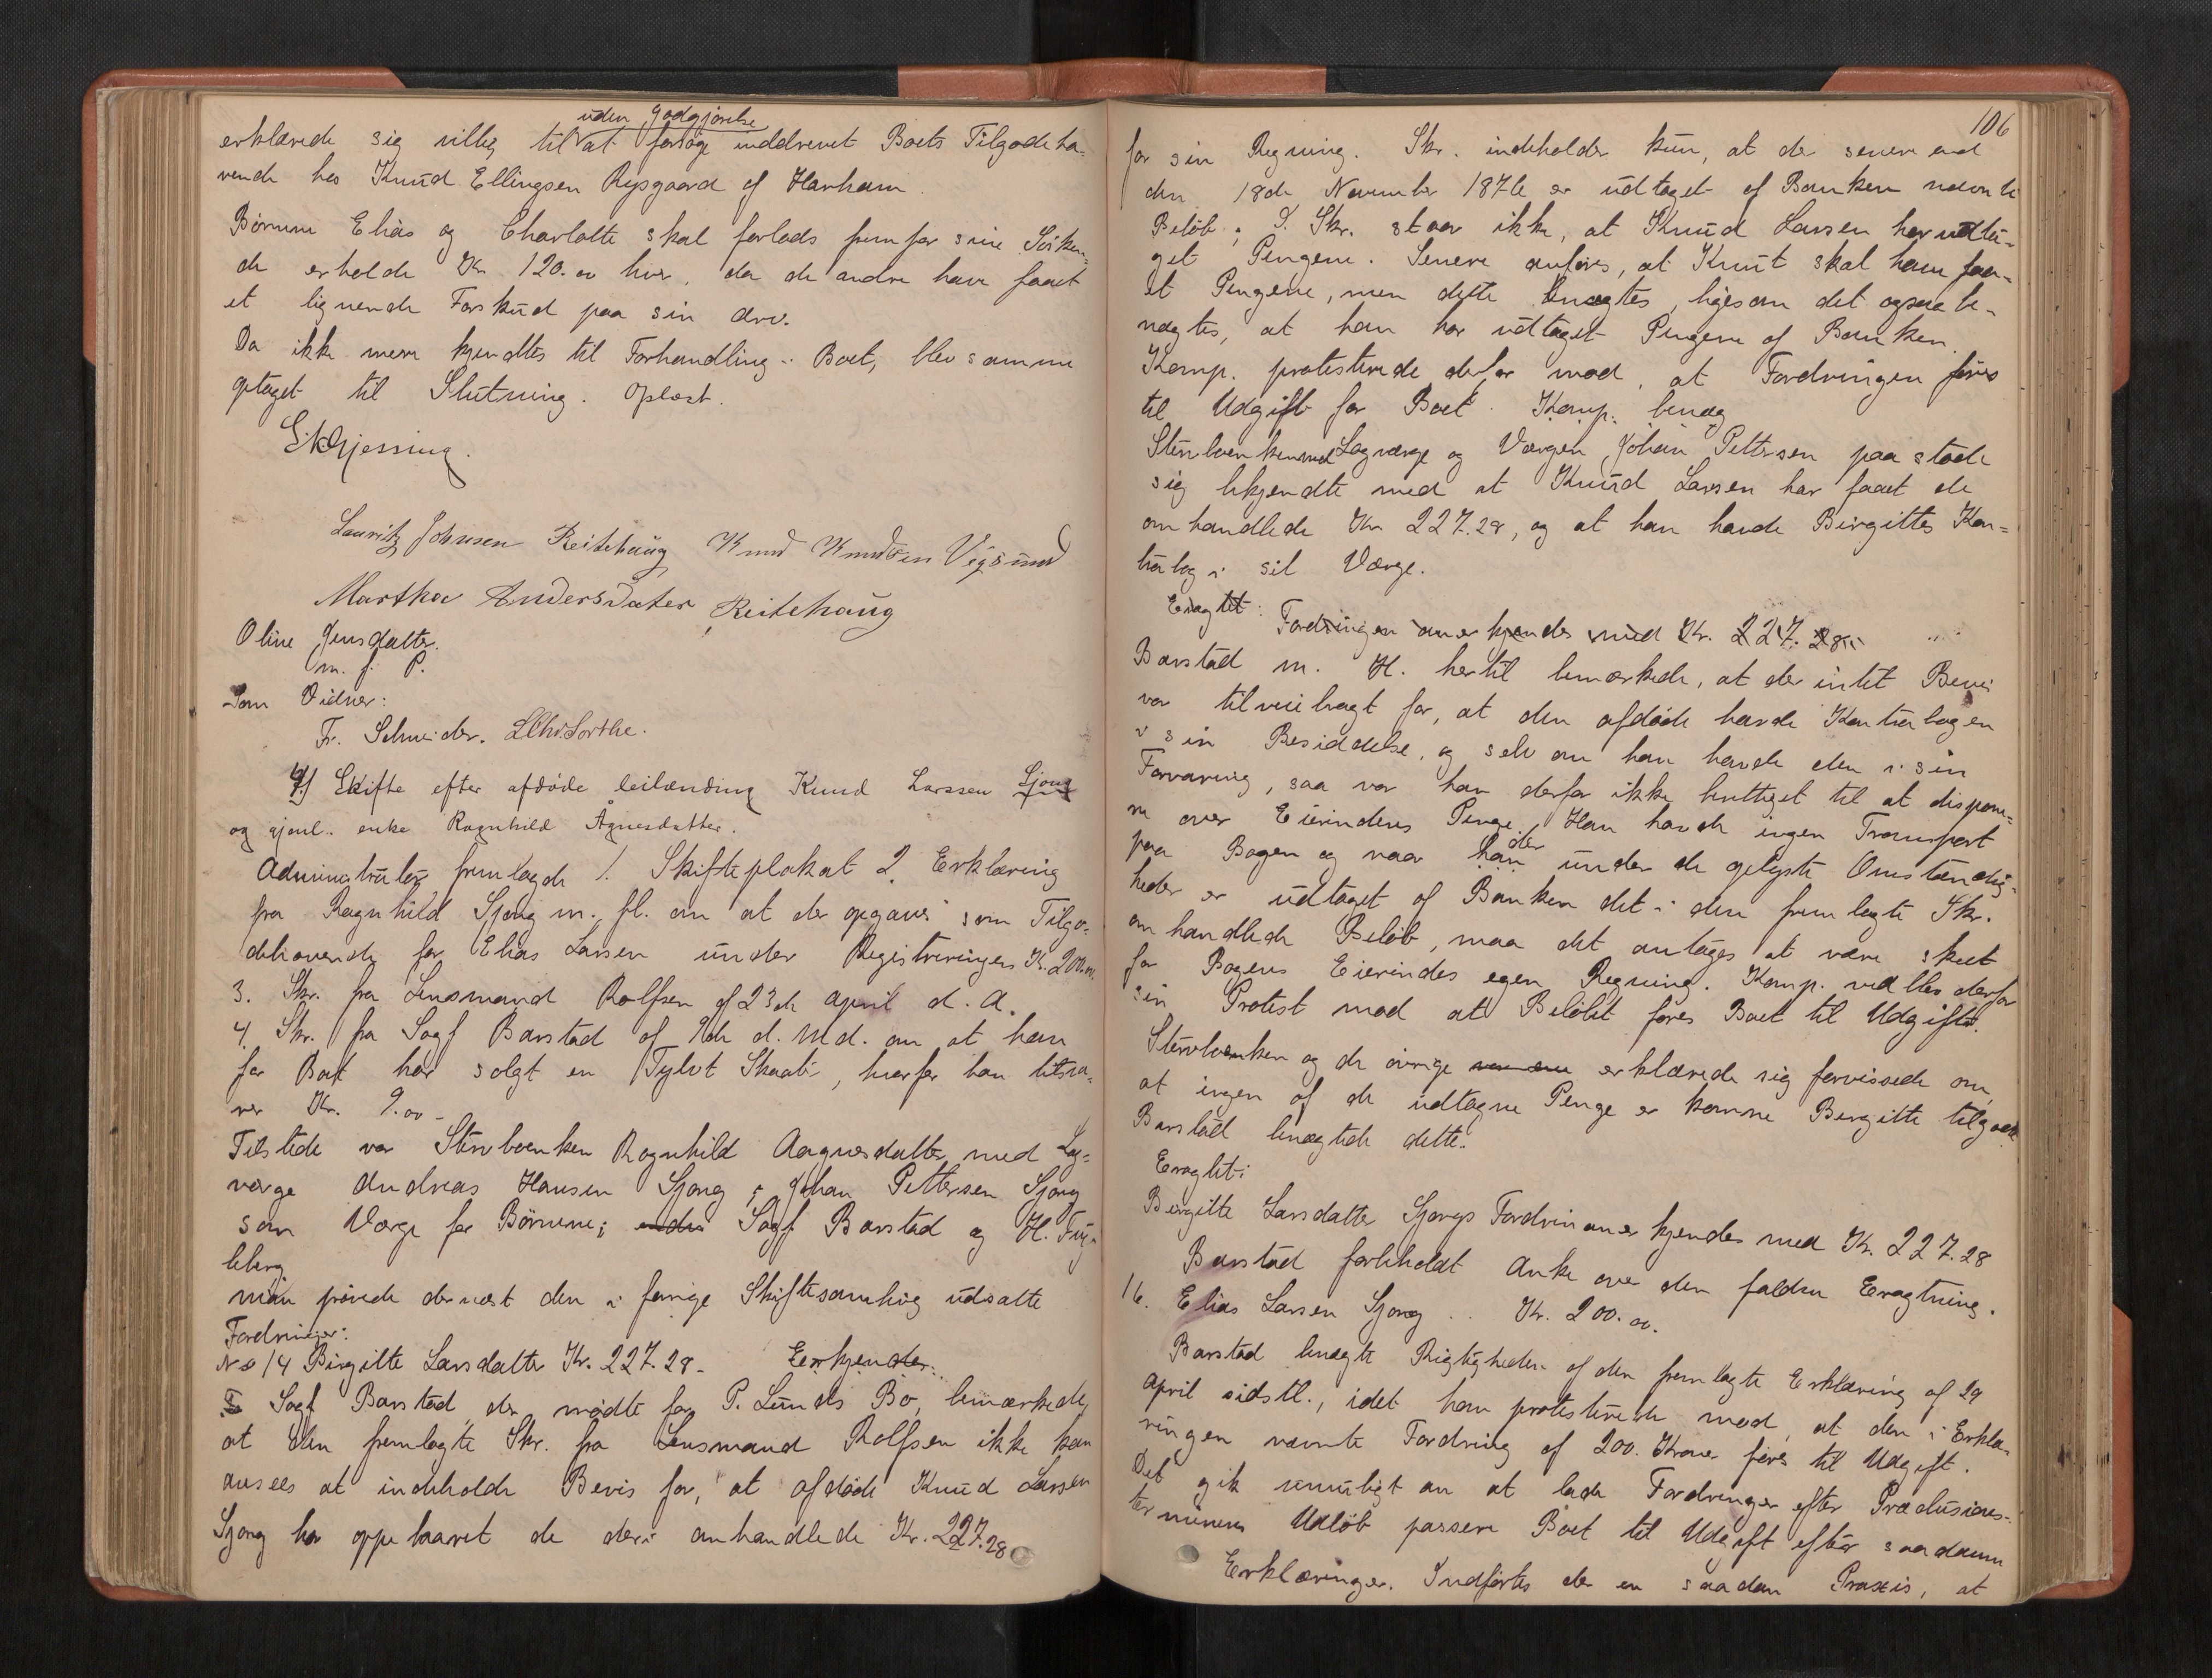 uden Godgjørelse
erklærede sig villig til at forsøge inddrevet Boets Tilgodeha-
vende hos Knud Ellingsen Rysgaard af Harham
Børnene Elias og Charlotte skal forlods fremfor sine Sösken-
de erholde Kr 120.00 hver, da de andre have faaet
et lignende Forskud paa sin Arv.
Da ikke mere kjendtes til Forhandling i Boet, blev samme
optaget til Slutning. Oplæst.
Lauritz Johnsen Reitehaug Knud Knudsen Vigsund
Martha Andersdater Reitehaug
Oline Jensdatter.
m. f. P.
Som Vidner:
Fr. Schneider. L Chr. Sorthe.
4) Skifte efter afdøde leilænding Knud Larssen Sjong
og gjenl. enke Ragnhild Ågnesdatter.
Administrator fremlagde 1. Skifteplakat 2. Erklæring
fra Ragnhild Sjong m. fl. om at der opgaves som Tilgo-
dehavende for Elias Larsen under Registreringen Kr. 200.00
3. Skr. fra Lensmand Rolfsen af 23de April d. A.
4. Skr. fra Sagf Barstad af 9de d. Md. om at han
for Boet har solgt en Tylvt Skaati, hvorfor han tilsva-
rer Kr. 9.00 -
Tilstede var Stervboenken Ragnhild Aagnesdatter med Lag-
værge Andreas Hansen Sjong; Johan Pettersen Sjong
som Værge for Børnene; Sagf Barstad og H. Fug-
leberg
man prøvede dernæst den i forrige Skiftesamling udsatte
Fordringer:
No 14 Birgitte Larsdatter Kr. 227.28 - Erkjender:
Sagf Barstad, der mødte for P. Lunds Bo, bemærkede,
at den fremlagte Skr. fra Lensmand Rolfsen ikke kan
ansees at indeholde Bevis for, at afdøde Knud Larsen
Sjong har oppebaaret de deri omhandlede Kr. 227.28
106
for sin Regning. Skr. indeholder kun, at der senere end
den 18de November 1876 er udtaget af Banken nævnte
Beløb; I Skr. staar ikke, at Knud Larsen har udta-
get Pengene. Senere anføres, at Knut skal have faa-
et Pengene, men dette benægtes, ligesom det ogsaa be-
nægtes, at han har udtaget Pengene af Banken.
Komp. protesterede derfor mod, at Fordringen føres
til Udgift for Boet. Komp. benæg
Stervboenken med Lagværge og Værgen Johan Pettersen paa stode
sig bekjendte med at Knud Larsen har faaet de
omhandlede Kr 227.28, og at han havde Birgittes Kon-
trabog i sit Værge.
Eragtet: Fordringen anerkjendes med Kr. 227.28
Barstad m. H. hertil bemærkede, at der intet Bevis
var tilveiebragt for, at den afdøde havde Kontrabogen
i sin Besiddelse, og selv om han havde den i sin
Forvaring, saa var han derfor ikke berettiget til at dispone-
re over Eierindens Penge. Han havde ingen Transport
paa Bogen og naar han der under de oplyste Omstændig-
heder er udtaget af Banken det i den fremlagte Skr.
omhandlede Beløb, maa det antages at være skeet
for Bogens Eierindes egen Regning. Komp. vedblev derfor
sin Protest mod at Beløbet føres Boet til Udgift.
Stervboenken og de øvrige erklærede sig forvissede om,
at ingen af de udtagne Penge er komne Birgitte tilgode
Barstad benægtede dette.
Eragtet:
Birgitte Larsdatter Sjongs Fordrin anerkjendes med Kr. 227.28
Barstad forbeholdt Anke over den faldne Eragtning.
16. Elias Larsen Sjong .. Kr. 200.00.
Barstad benægte Rigtigheden af den fremlagte Erklæring af 29
April sidstl., idet han protesterede mod, at den i Erklæ-
ringen nævnte Fordring af 200. Kroner føres til Udgift.
Det gik umuligt an at lade Fordringer efter Præclusions-
terminens Udløb passere Boet til Udgift efter saadanne
Erklæringer. Indførtes der en saadan Praxis, at